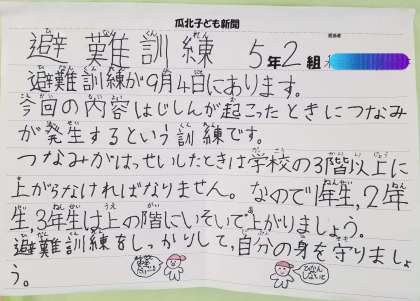 瓜北子ども新聞
避難訓練 5年2組
避難訓練が9月4日にあります。
今回の内容はじしんが起こったときにつなみ
が発生するという訓練です。
つなみがはっせいしたときは学校の3階以上に
上がらなければなりません。なので1年生,2年
生,3年生は上の階にいそいで上がりましょう。
避難訓練をしっかりして,自分の身を守りましょ
う。